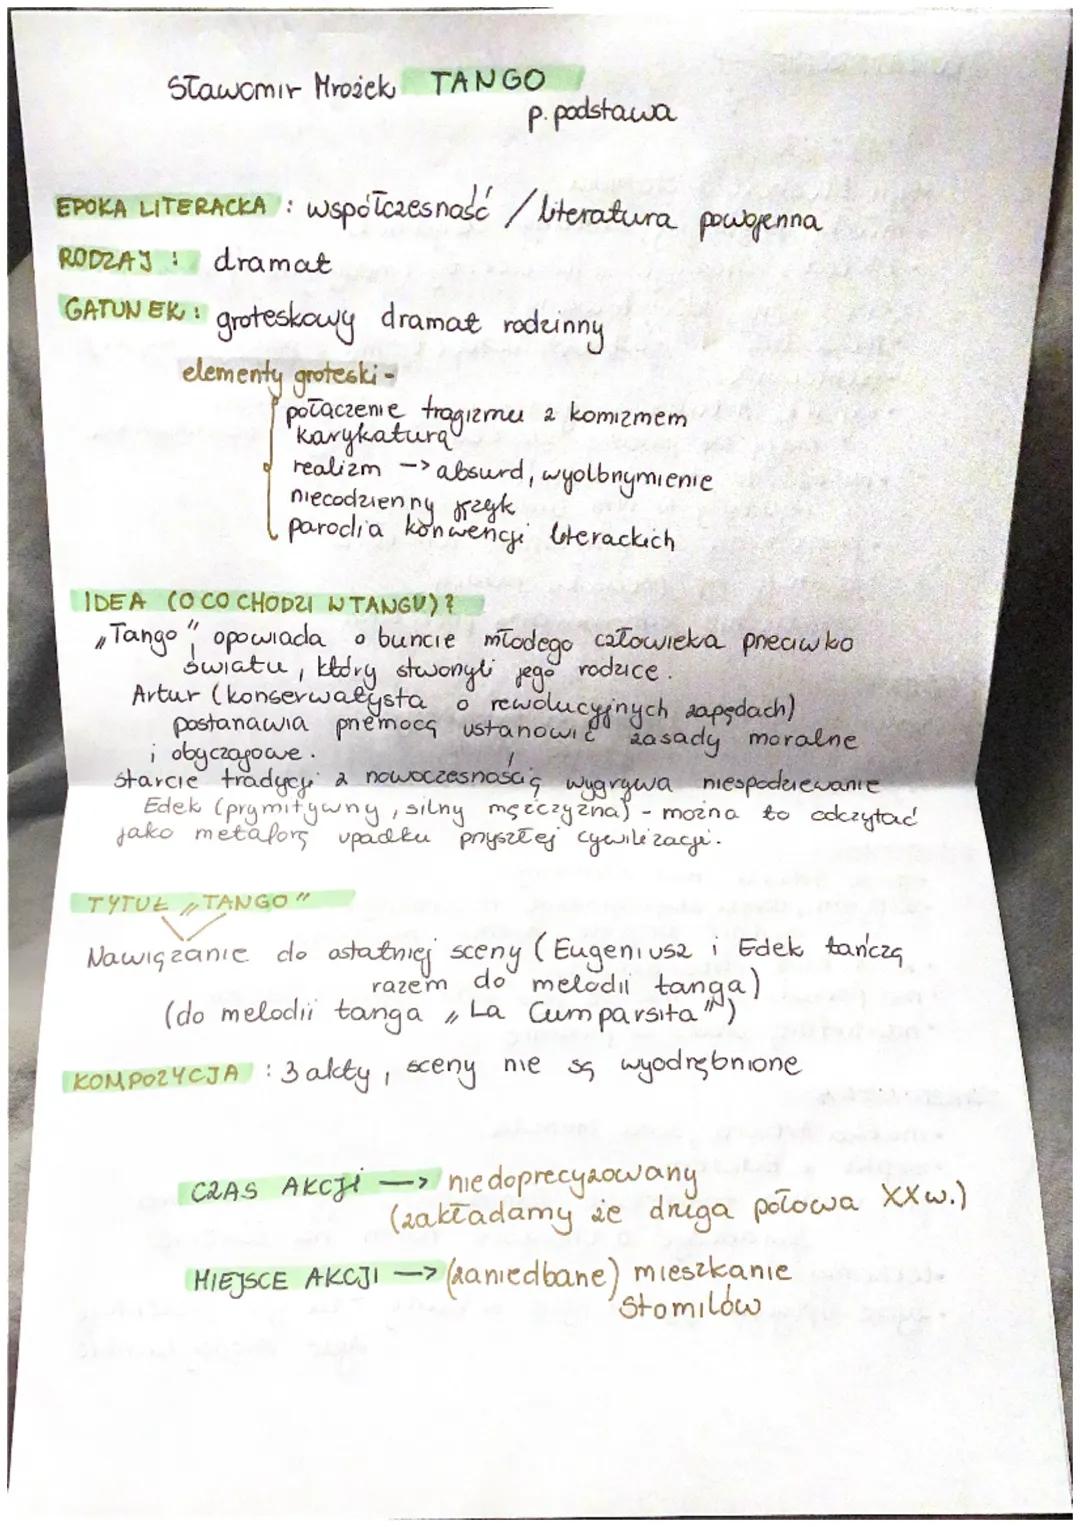 Sławomir Mrożek TANGO
p. podstawa
EPOKA LITERACKA : współczesność / literatura powojenna
RODZAJ : dramat
GATUNEK : groteskowy dramat rodzinny
elementy groteski -
połączenie tragizmu z komizmem
karykatura
realizm -> absurd, wyolbrzymienie
niecodzienny język
parodia konwencji literackich
IDEA (O CO CHODZI W TANGU)?
„Tango" opowiada o buncie młodego człowieka przeciwko
światu, który stworzyli jego rodzice.
Artur (konserwatysta o rewolucyjnych zapędach)
postanawia przemocą ustanowić zasady moralne
i obyczajowe.
Starcie tradycji z nowoczesnością wygrywa niespodziewanie
Edek (prymitywny, silny mężczyzna) - można to odczytać
jako metaforę upadku przyszłej cywilizacji.
TYTUŁ „TANGO"
Nawiązanie do ostatniej sceny (Eugeniusz i Edek tańczą
razem do melodii tanga)
(do melodii tanga „La Cumparsita")
KOMPOZYCJA : 3 akty, sceny nie są wyodrębnione
CZAS AKCJI -> niedoprecyzowany
(zakładamy że druga połowa XX w.)
MIEJSCE AKCJI -> (zaniedbane) mieszkanie
Stomilów